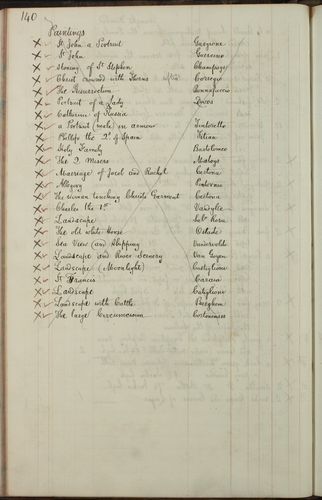 140
Paintings
St. John a Portrait
St. John Guercino
Stoning of St. Stephen Champagn
Christ crowned with Thorns Corregio
The Resurrection
Portrait of a Lady
Catharine of Russia
a Portrait (male) in armour Tintoretto
Phillip the 2d. of Spain Titian
Holy Family Bartolomeo
The 2 Misers
Marriage of Jacob and Rachel Cortona
Allegory
The woman touching Christs Garment Cortona
Charles the 1st. Vandyke
Landscape Salv. Rosa
The old white Horse Ostade
Sea View and Shipping Vandervelde
Landscape and River Scenery Van Goyen
Landscape (Moonlight) Castiglione
St. Francis
Landscape
Landscape with Cattle Berghem
The large Circumcision